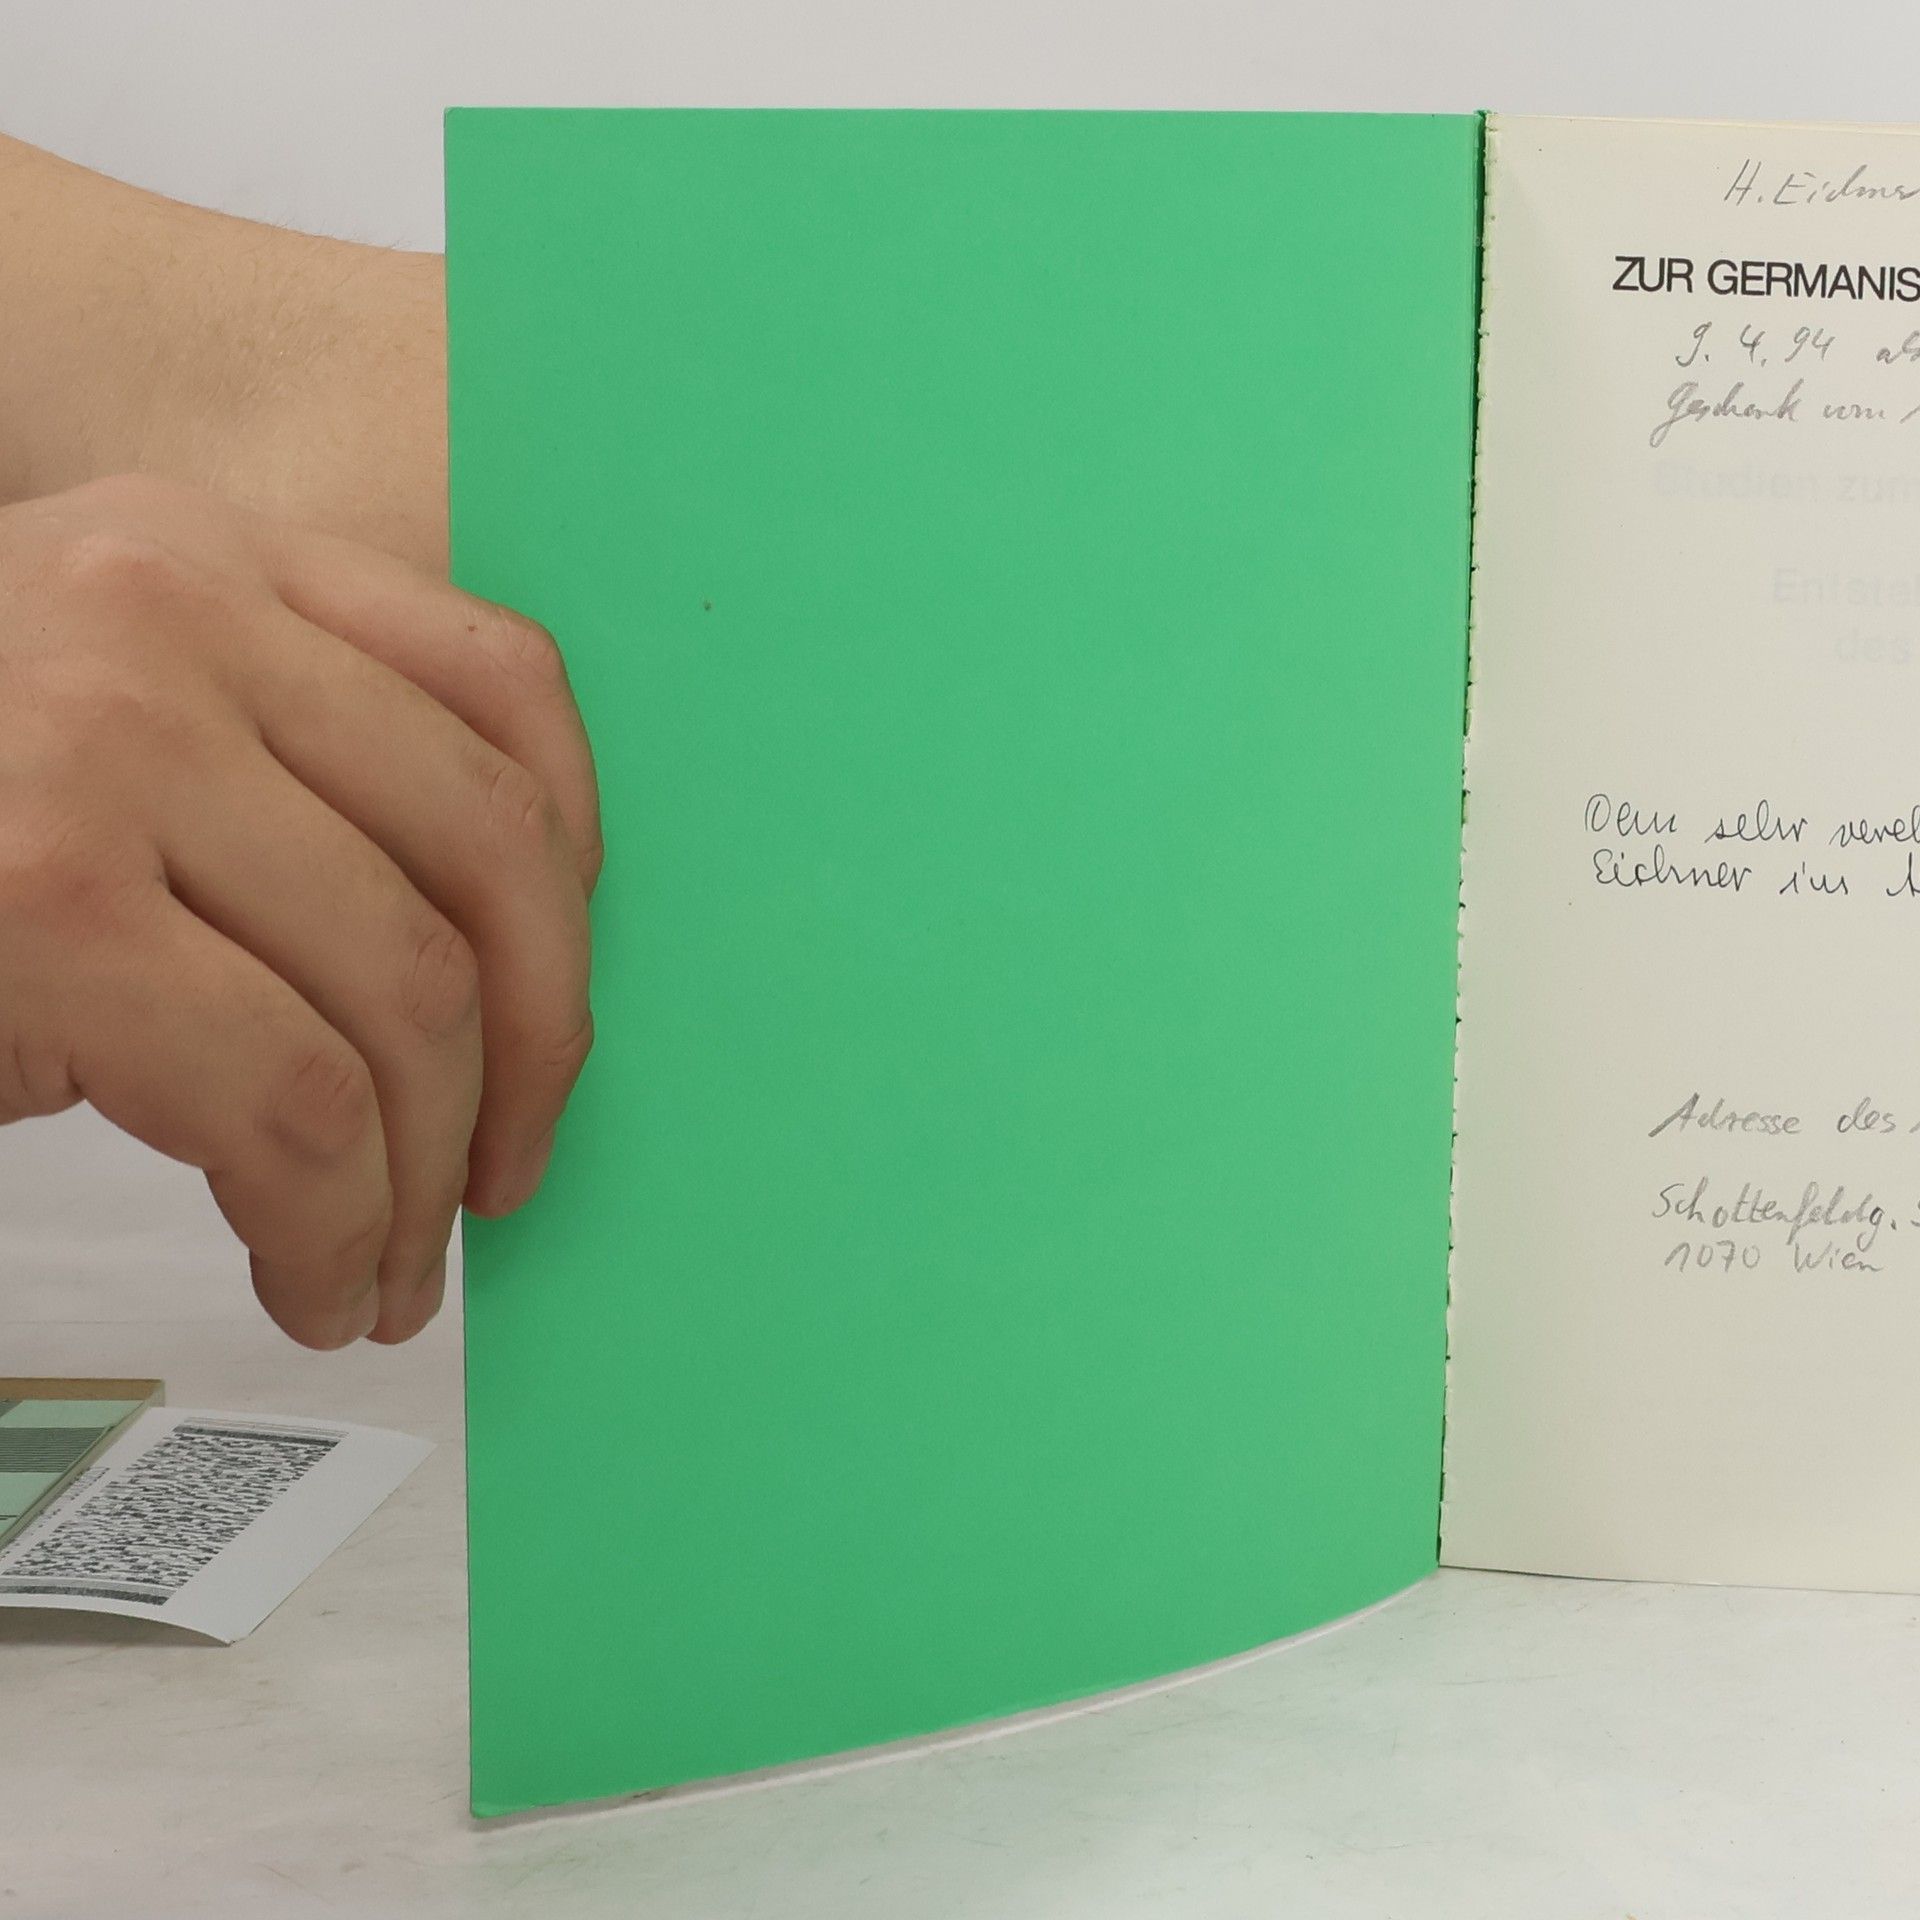 H. Eichner
ZUR GERMANIS
9. 4. 94 als
Geschenk vom
Studien zum
Entsteh
des
Dem sehr vereh
Eichner im
Adresse des
Schottenfeldg.
1070 Wien